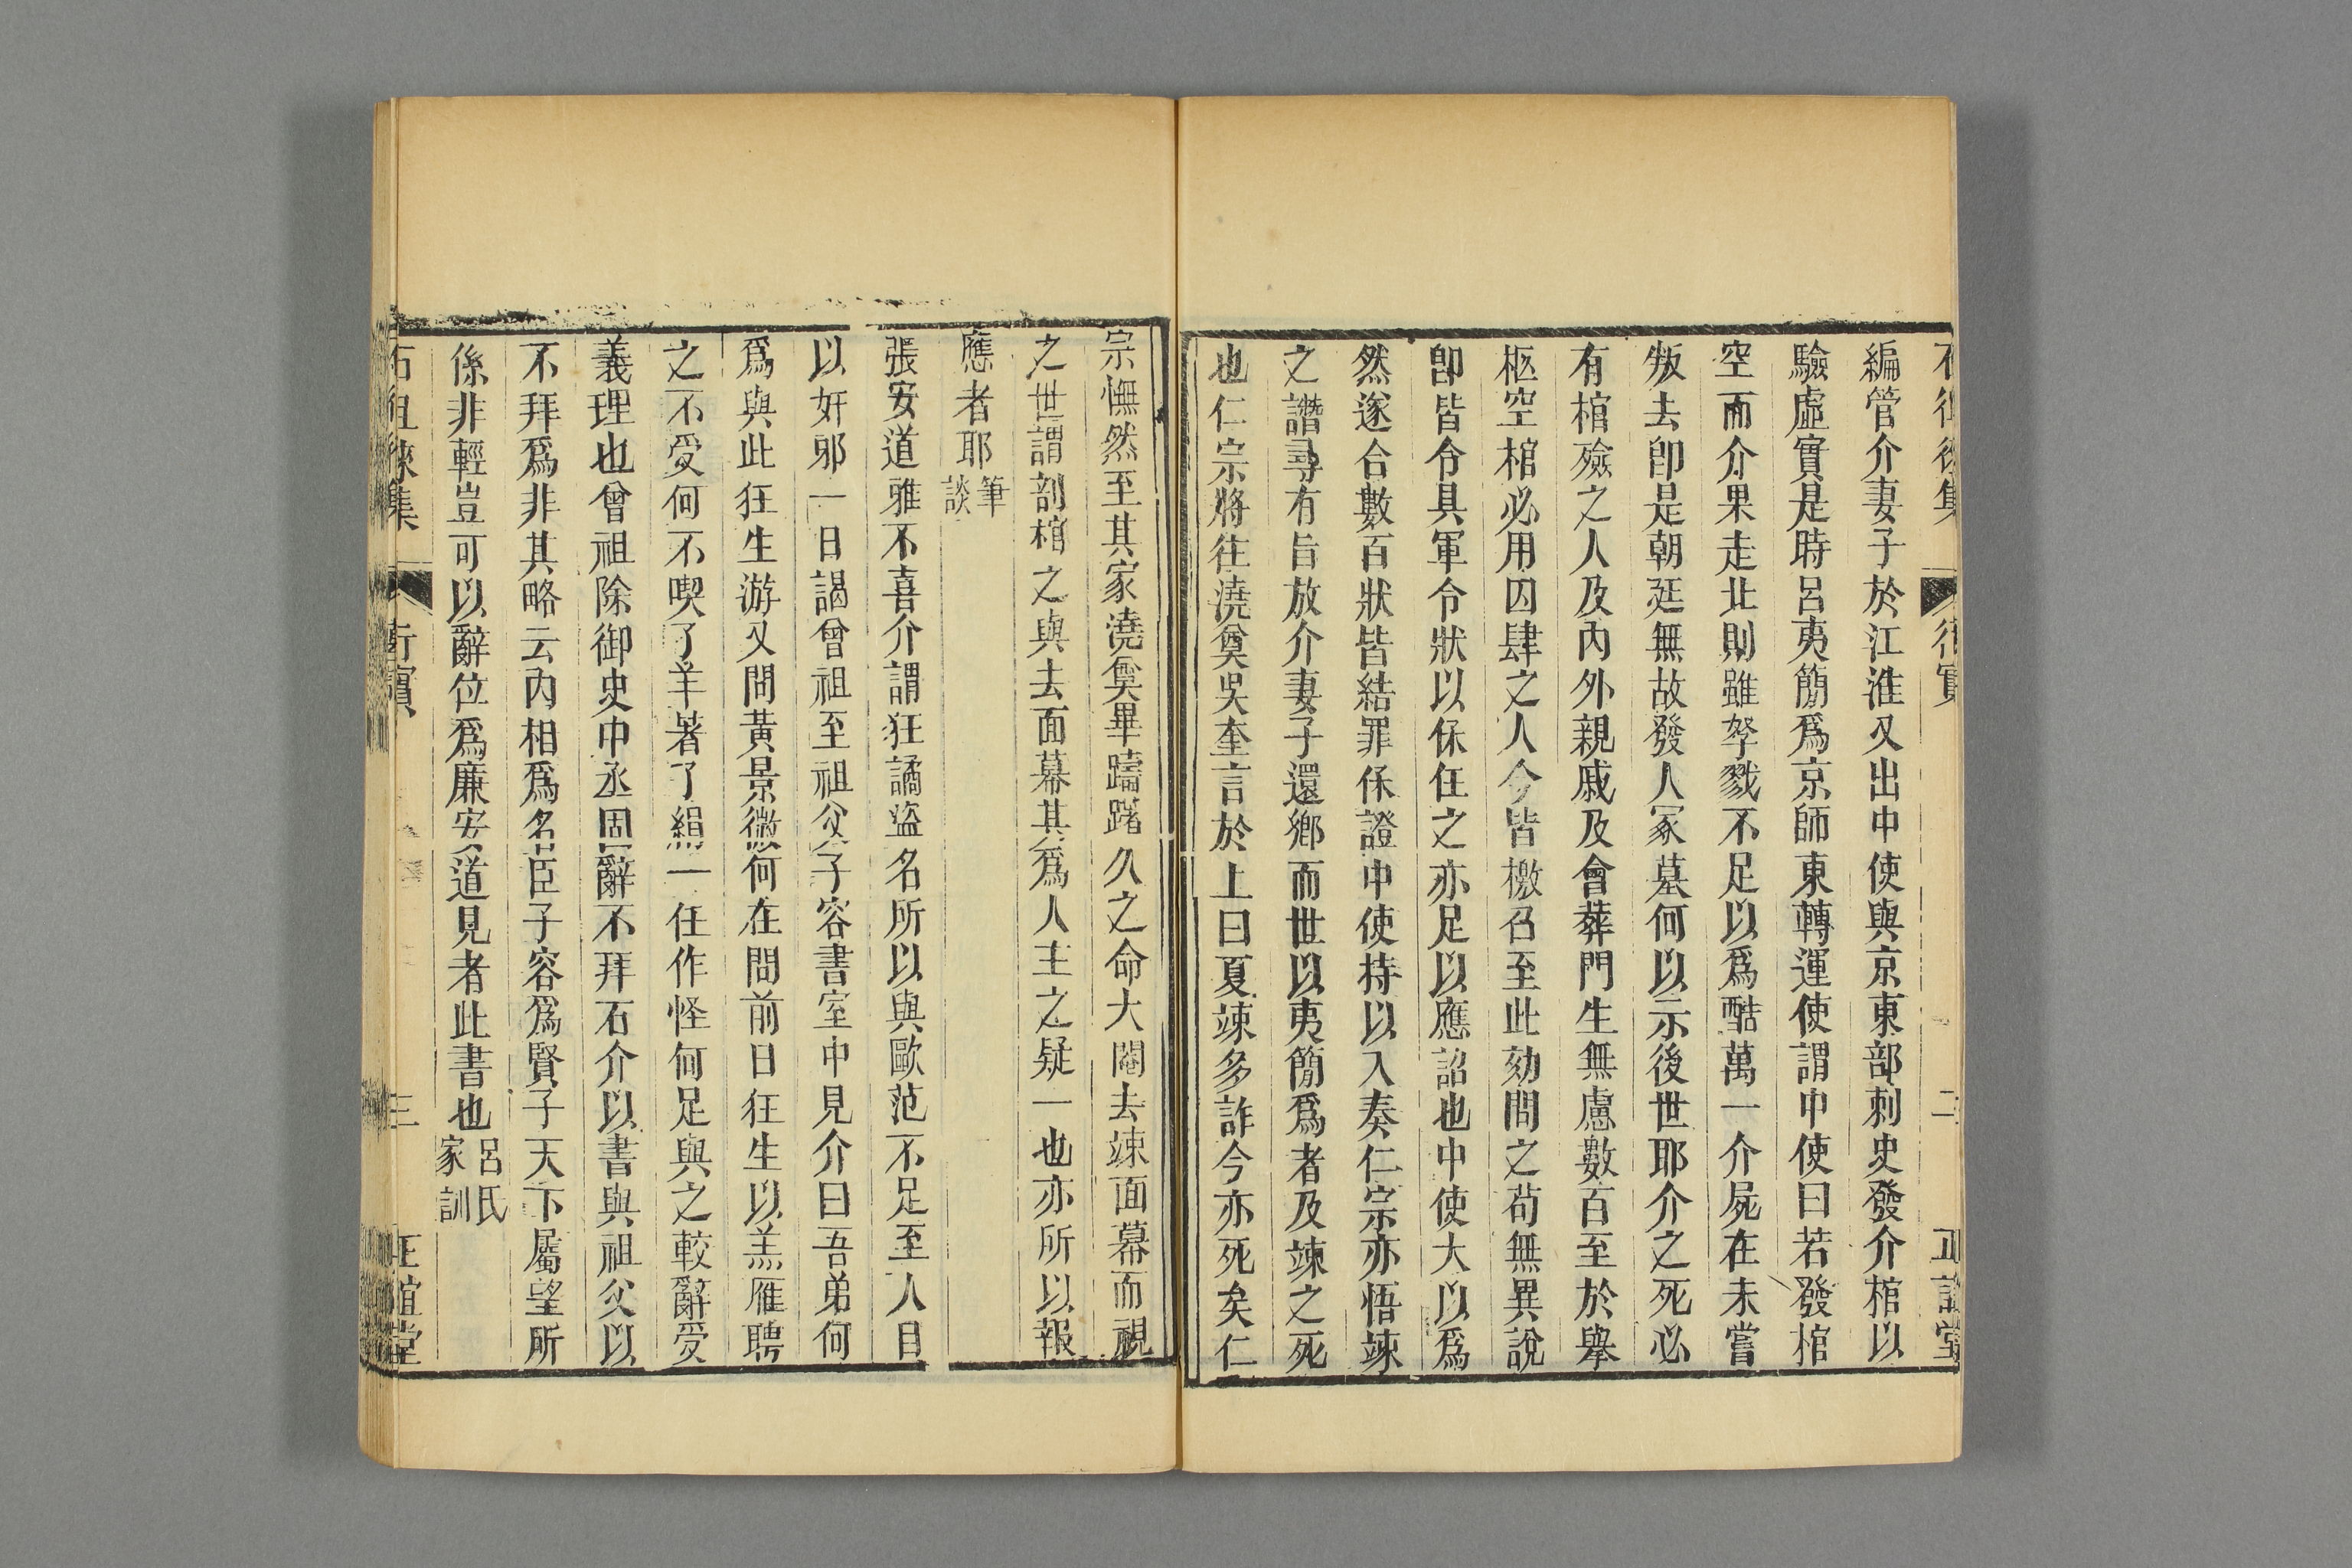 編管介妻子於江淮又出中使與京東部刺史發介棺以
驗虛實是時呂夷簡爲京師東轉運使謂中使曰若發棺
空而介果走北則雖孥戮不足以爲酷萬一介屍在未嘗
叛去卽是朝廷無故發人冢墓何以示後世耶介之死必
有棺殮之人及內外親戚及會葬門生無慮數百至於舉
柩空棺必用凶肆之人今皆檄召至此劾問之苟無異說
卽皆令具軍令狀以保任之亦足以應詔也中使大以爲
然遂合數百狀皆結罪保證中使持以入奏仁宗亦悟竦
之譖尋有旨放介妻子還鄉而世以夷簡爲者及竦之死
也仁宗將往澆奠吳奎言於上曰夏竦多詐今亦死矣仁
宗憮然至其家澆奠畢躊躇久之命大閹去竦面幕而視
之世謂剖棺之與去面幕其爲人主之疑一也亦所以報
應者耶筆談
張安道雅不喜介謂狂譎盜名所以與歐范不足至人目
以奸邪一日謁曾祖至祖父子容書室中見介曰吾弟何
爲與此狂生游又問黃景微何在問前日狂生以羔雁聘
之不受何不喫了羊著了絹一任作怪何足與之較辭受
義理也曾祖除御史中丞固辭不拜石介以書與祖父以
不拜爲非其略云內相爲名臣子容爲賢子天下屬望所
係非輕豈可以辭位爲廉安道見者此書也呂氏家訓
石徂徠集 三 正誼堂